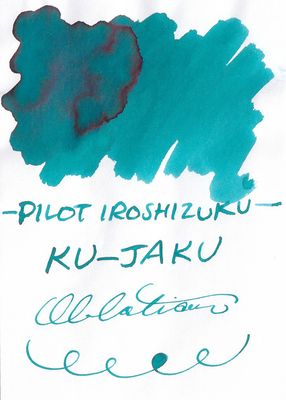 -PILOT IROSHIZUKU-
KU-JAKU
Oblations